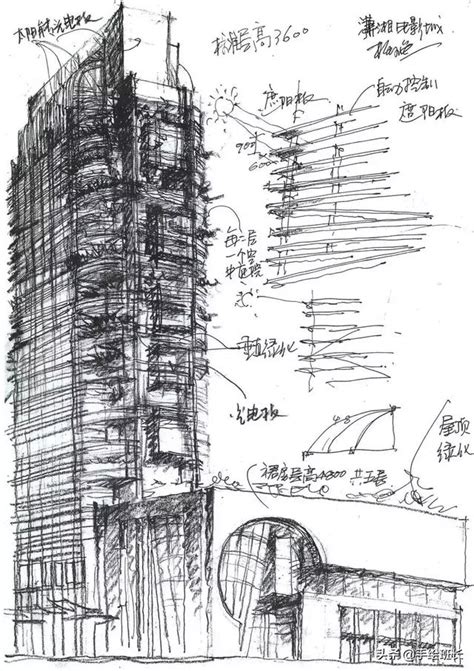 太阳能光电板
标准层高3600
潇湘电影城
遮阳板
自动控制
遮阳板
900
600
每二层
一个空
中庭院
垂直绿化
光电板
48
屋顶
绿化
裙房层高4800 共五层
头条@手绘班长